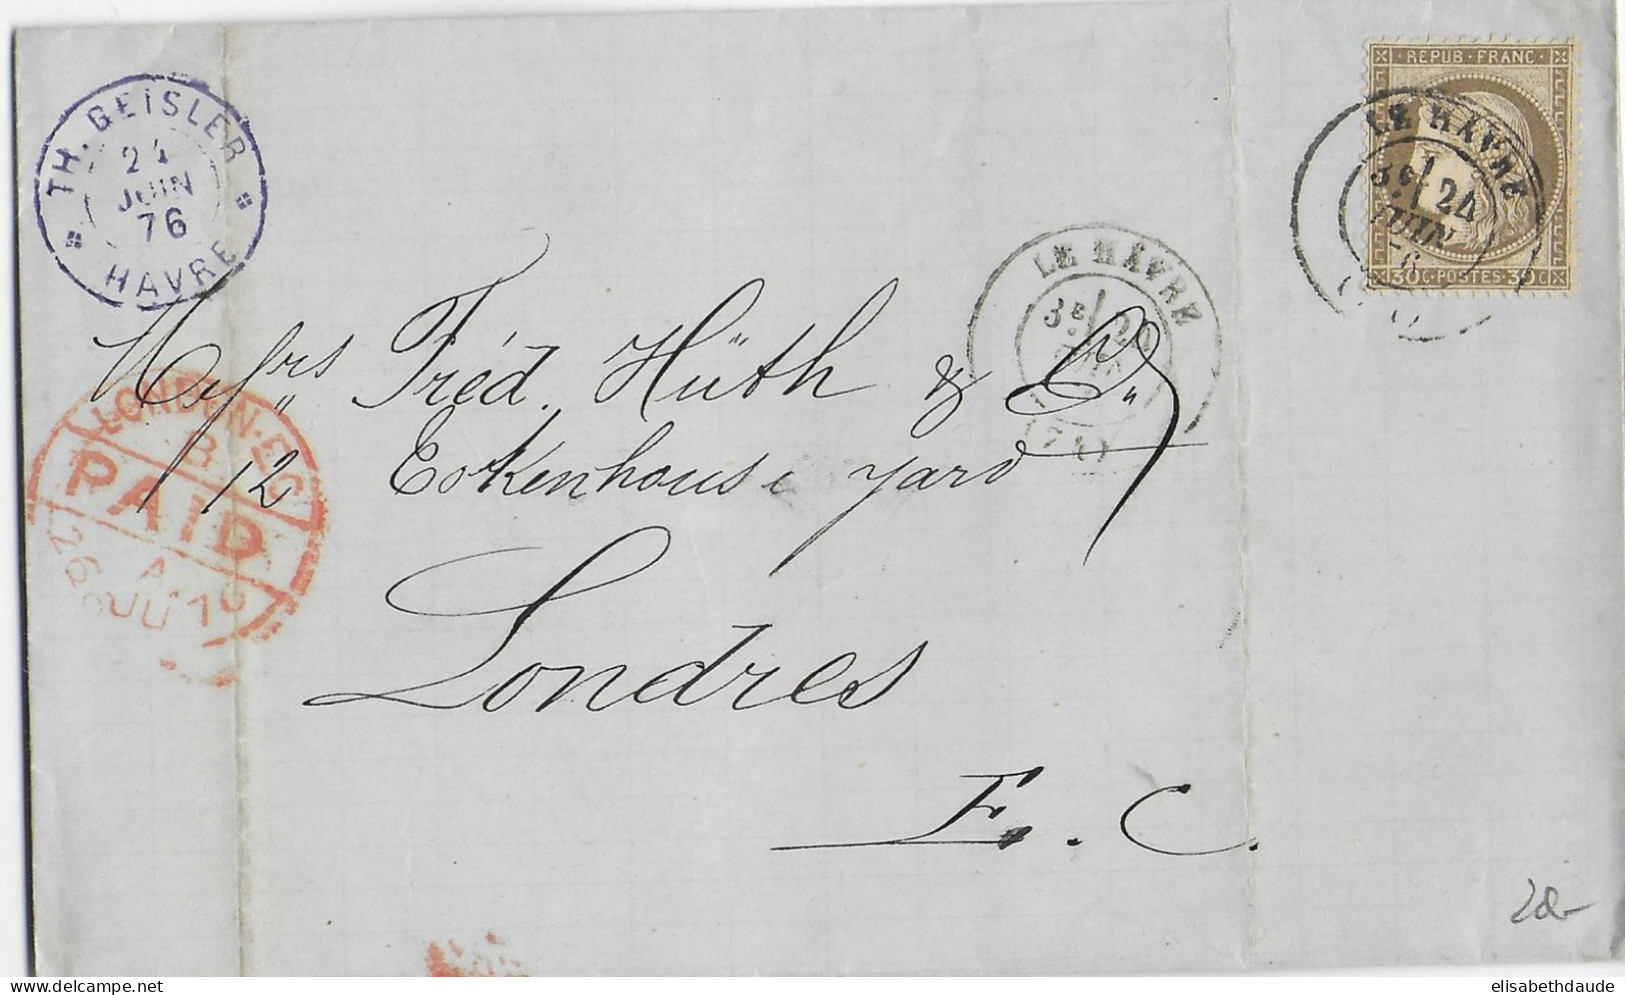 REPUB · FRANC
30 C · POSTES · 30 C
LE HAVRE
3E 24
JUIN
TH. GEISLER
24
JUIN
76
HAVRE
LE HAVRE
3E
(74)
Messrs Fréd. Hüth & Co
12 Tokenhouse yard
Londres
E.C.
LONDON·EC
B
PAID
A
26 JU 76
20-
elisabethdaude